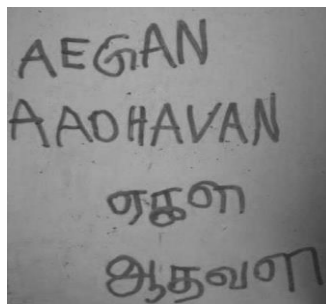 AEGAN
AADHAVAN
ஏகள
ஆதவள